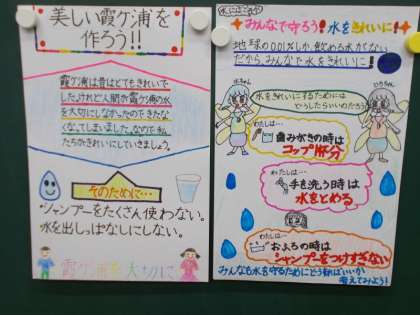 美しい霞ケ浦を
作ろう!!
霞ケ浦は昔はとてもきれいで
した。けれど人間が霞ケ浦の水
を大切にしなかったのできたな
くなってしまいました。なので私
たちがきれいにしていきましょう。
そのために…
・シャンプーをたくさん使わない。
水を出しっぱなしにしない。
霞ケ浦を大切に
みんなで守ろう!水をきれいに!
地球の0.01%しか飲める水がない
だから、みんなで水をきれいに!
水をきれいにするためには
どうしたらいいのだろう?
わたしは…
歯みがきの時は
コップ1杯分
わたしは…
手を洗う時は
水をとめる
わたしは…
おふろの時は
シャンプーをつけすぎない
みんなも水を守るためにどうすればいいか
考えてみよう!